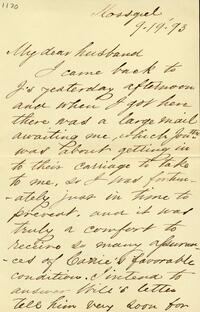 1170
Mossgiel
9-19-93
My dear husband
I came back to
J's yesterday afternoon
and when I got here
there was a large mail
awaiting me, which
was about getting in
to their carriage to take
to me, so I was fortun-
ately just in time to
prevent, and it was
truly a comfort to
receive so many assuran-
ces of Carrie's favorable
condition. I intend to
answer Will's letter
tell him very soon for